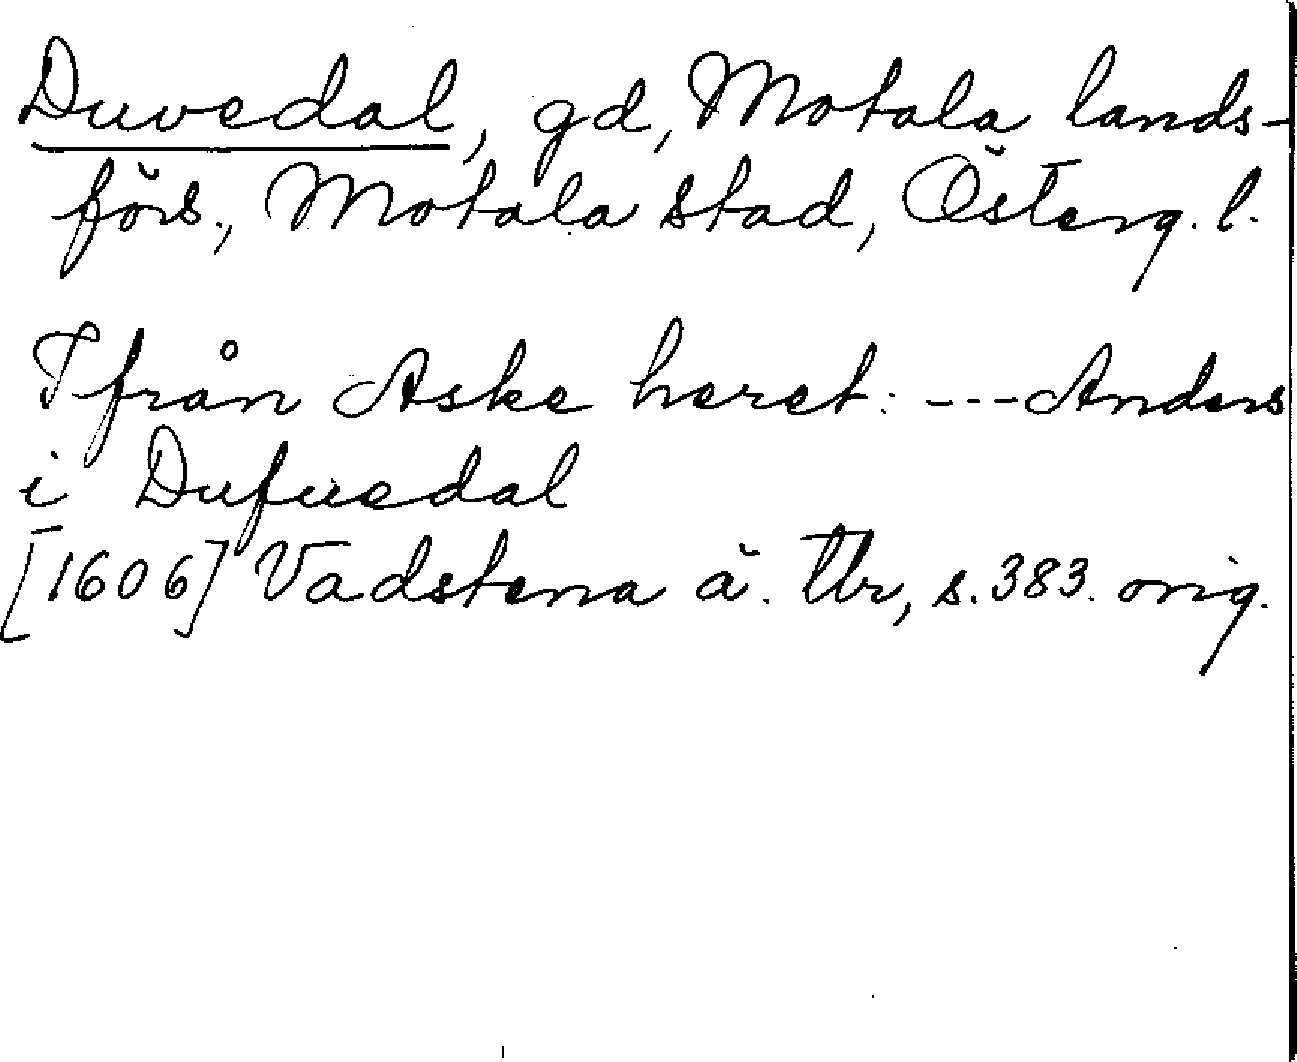 Duvedal, gd, Motala lands-
förs., Motala stad, Österg. l.
Ifrån Aske heret: --- Anders
i Dufuedal
[1606] Vadstena ä. Tbr, s. 383. orig.